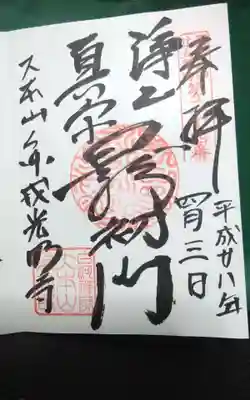 奉拝
平成廿八年
四月三日
浄土
真宗
最初門
大本山金戒光明寺